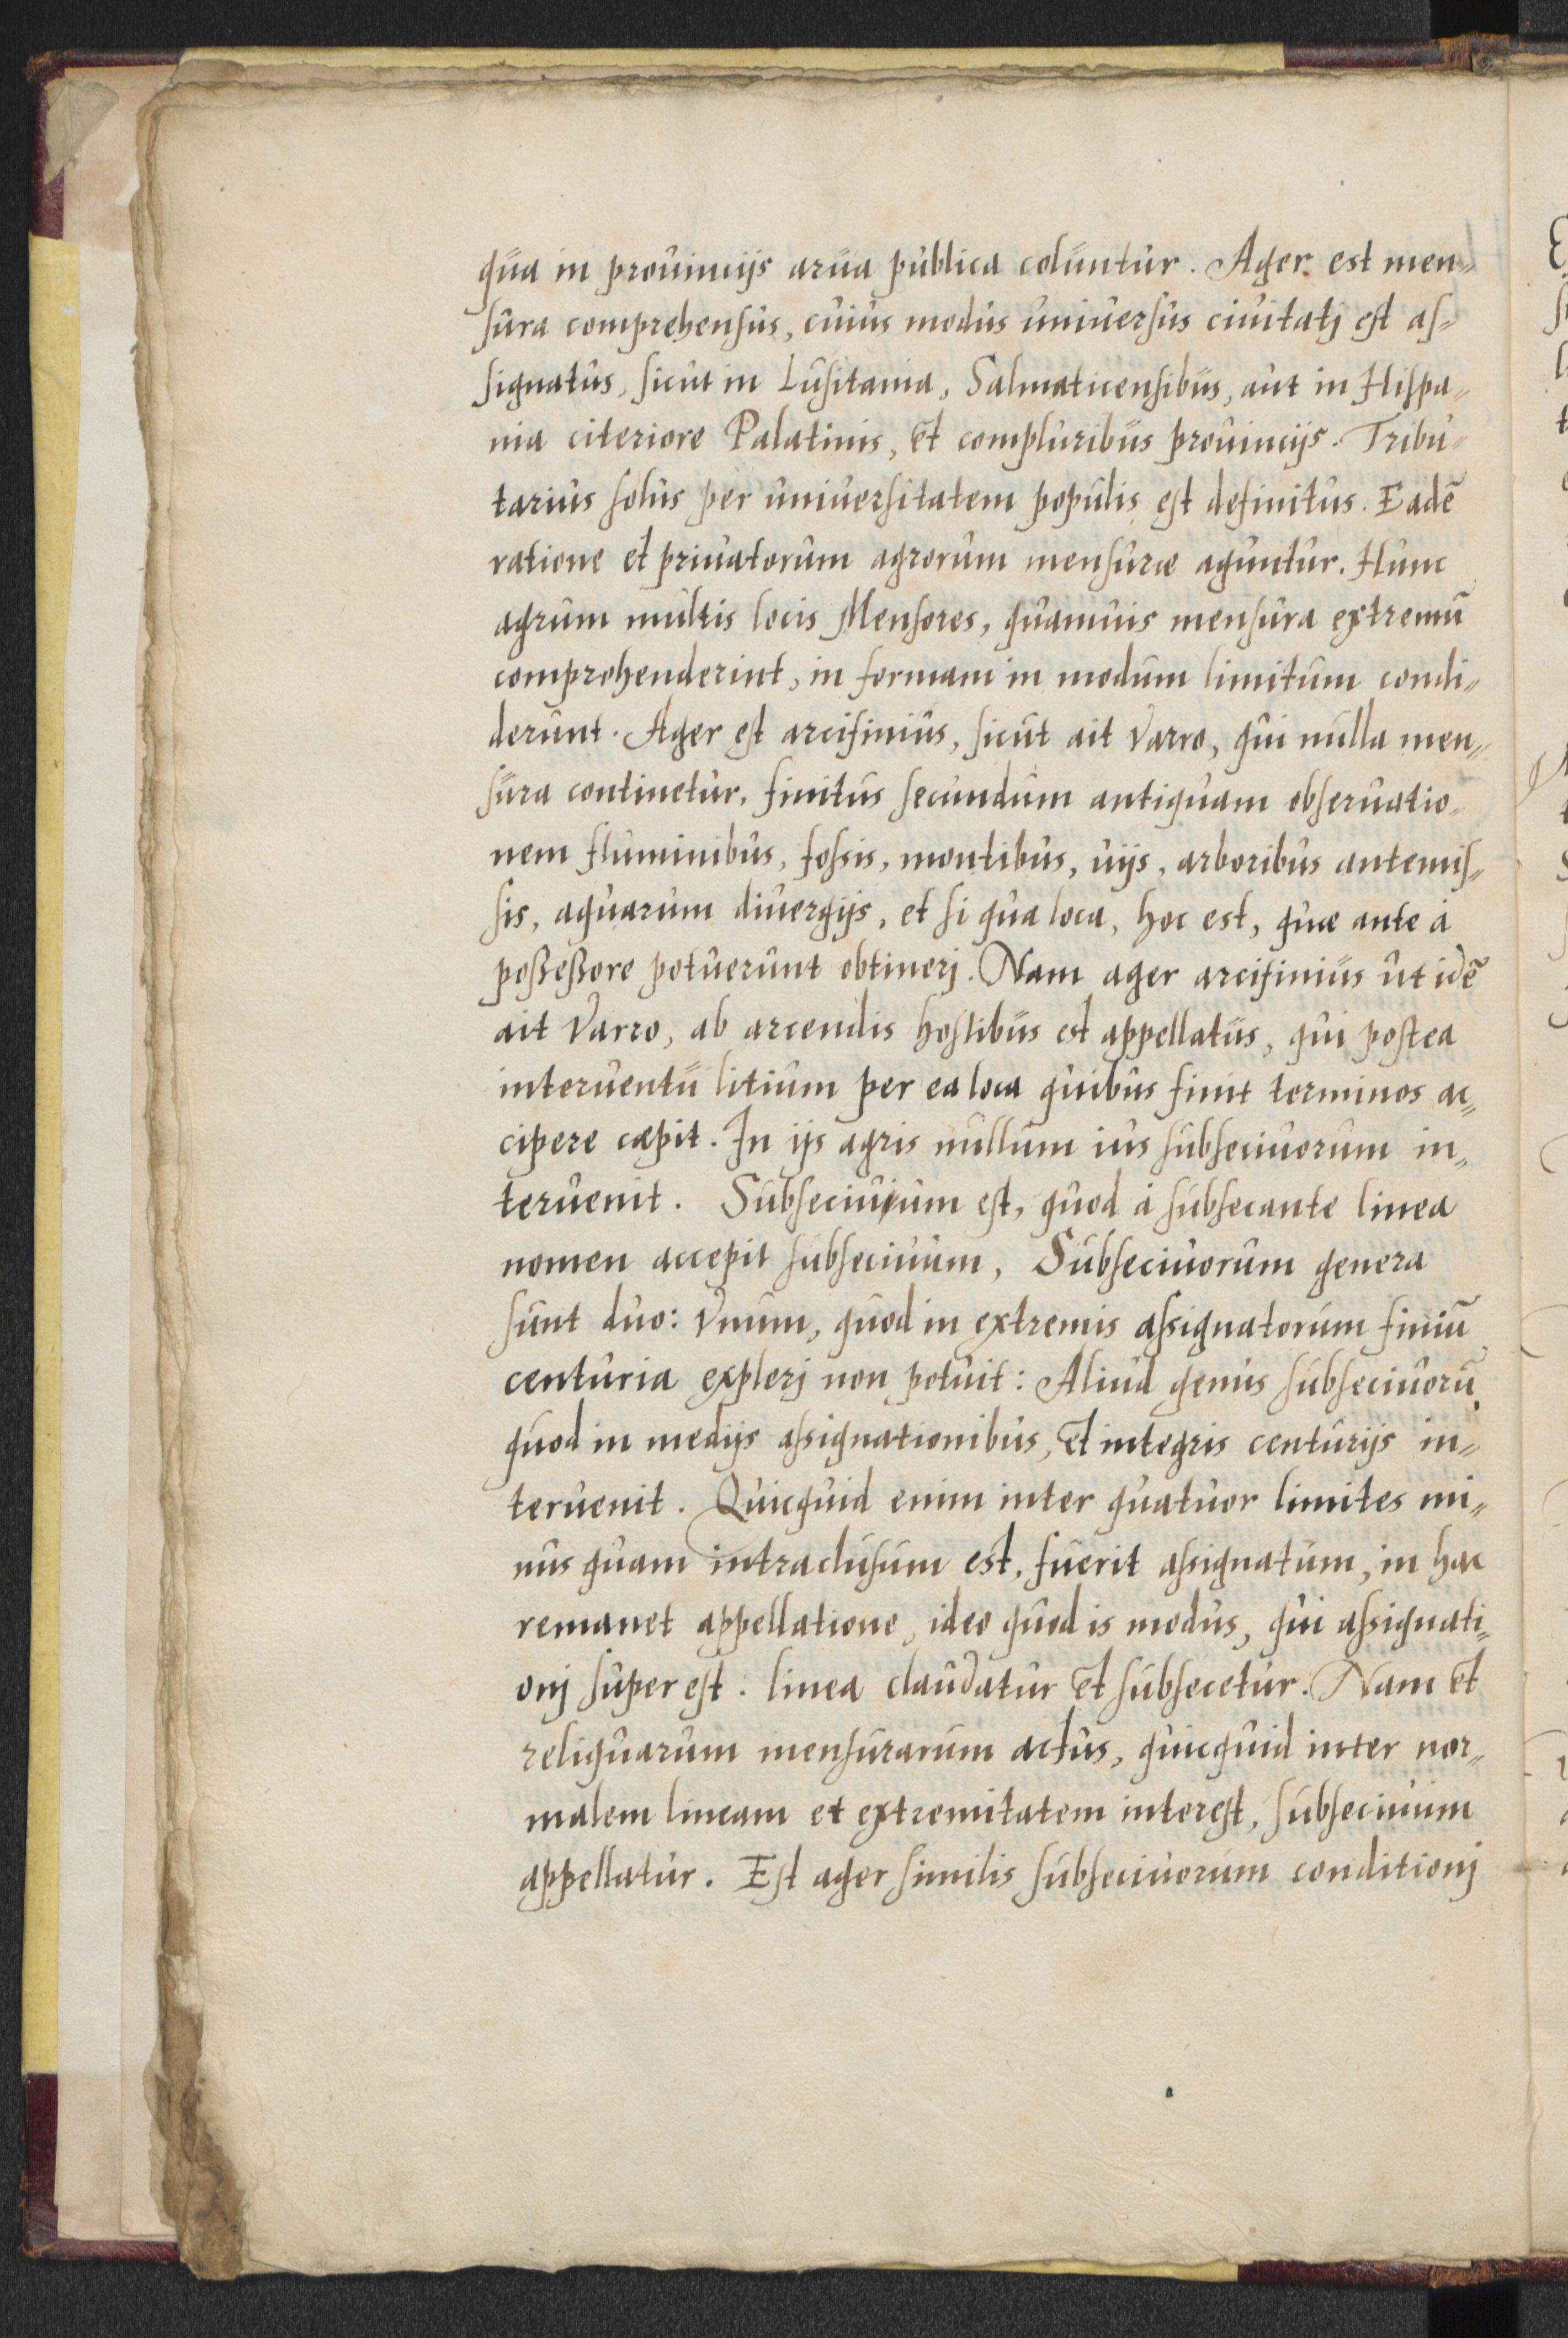 qua in prouincijs arua publica coluntur. Ager est men-
sura comprehensus, cuius modus uniuersus ciuitatj est as-
signatus, sicut in Lusitania, Salmaticensibus, aut in Hispa-
nia citeriore Palatinis, et compluribus prouincijs. Tribu-
tarius solus per uniuersitatem populis est definitus. Eadē
ratione et priuatorum agrorum mensuræ aguntur. Hunc
agrum multis locis Mensores, quamuis mensura extremū
comprehenderint, in formam in modum limitum condi-
derunt. Ager est arcifinius, sicut ait Varro, qui nulla men-
sura continetur, finitus secundum antiquam obseruatio-
nem fluminibus, fossis, montibus, uijs, arboribus antemis-
sis, aquarum diuergijs, et si qua loca, hoc est, quæ ante à
poßeßore potuerunt obtinerj. Nam ager arcifinius ut idē
ait Varro, ab arcendis hostibus est appellatus, qui postea
interuentu litium per ea loca quibus finit terminos ac-
cipere cæpit. In ijs agris nullum ius subseciuorum in-
teruenit. Subseciuium est, quod à subsecante linea
nomen accepit subseciuum, Subseciuorum genera
sunt duo: Vnum, quod in extremis assignatorum finiū
centuria explerj non potuit: Aliud genus subseciuorū,
quod in medijs assignationibus, et integris centurijs in-
teruenit. Quicquid enim inter quatuor limites mi-
nus quam intraclusum est, fuerit assignatum, in hac
remanet appellatione, ideo quod is modus, qui assignati-
onj super est: linea claudatur et subsecetur. Nam et
reliquarum mensurarum actus, quicquid inter nor-
malem lineam et extremitatem interest, subseciuum
appellatur. Est ager similis subseciuorum conditionj